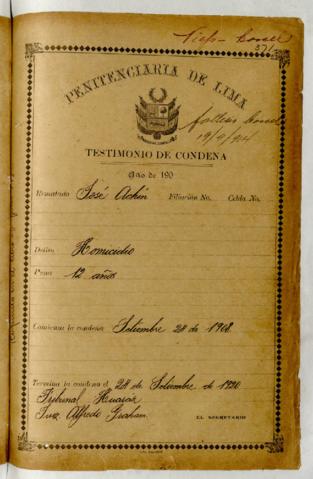 371
PENITENCIARIA DE LIMA
19/9/24
TESTIMONIO DE CONDENA
Año de 190
Rematado José Achín Filiación No. Celda No.
Delito Homicidio
Pena 12 años
Comienza la condena Setiembre 28 de 1908
Termina la condena el 28 de Setiembre de 1920
Tribunal Huaráz
Juez Alfredo Graham
EL SECRETARIO